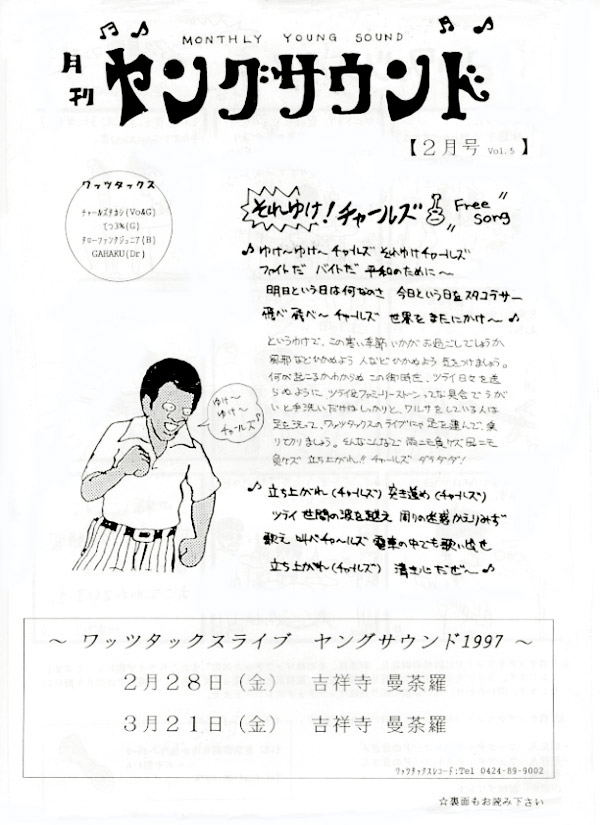 MONTHLY YOUNG SOUND
月刊 ヤングサウンド
【2月号 Vol.5 】
ワッツタックス
チャールズナカシ(Vo&G)
てつ3%(G)
テローファンクジュニア(B)
GAHAKU(Dr)
それゆけ!チャールズ "Free Song"
♪ ゆけ〜ゆけ〜 チャールズ それゆけチャールズ
ファイトだ バイトだ 平和のために〜
明日という日は何なのさ 今日という日をスタコラサー
飛べ 飛べ〜 チャールズ 世界をまたにかけ〜 ♪
というわけで、この寒い季節 いかがお過ごしでしょうか
風邪などひかぬよう 人などひかぬよう 気をつけましょう。
何が起こるかわからぬ この御時世、ツライ日々を送
らぬように、ツライ&ファミリーストーンってな具合で うが
いと手洗いだけは しっかりと、ワルサをしている人は
足を洗って、ワッツタックスのライブにも 足を運んで、乗
り切りましょう。そんなこんなで 雨ニモ負ケズ 風ニモ
負ケズ 立ち上がれ!! チャールズ ダダダダン
ゆけ〜
ゆけ〜
チャールズ♪
♪ 立ち上がれ(チャールズ) 突き進め(チャールズ)
ツライ 世間の波を越え 周りの迷惑かえりみず
歌え 叫べチャールズ 電車の中でも歌い出せ
立ち上がれ(チャールズ) 清き心だぜ〜 ♪
〜 ワッツタックスライブ ヤングサウンド1997 〜
2月28日(金) 吉祥寺 曼荼羅
3月21日(金) 吉祥寺 曼荼羅
ワッツタックスレコード:Tel 0424-89-9002
☆裏面もお読み下さい